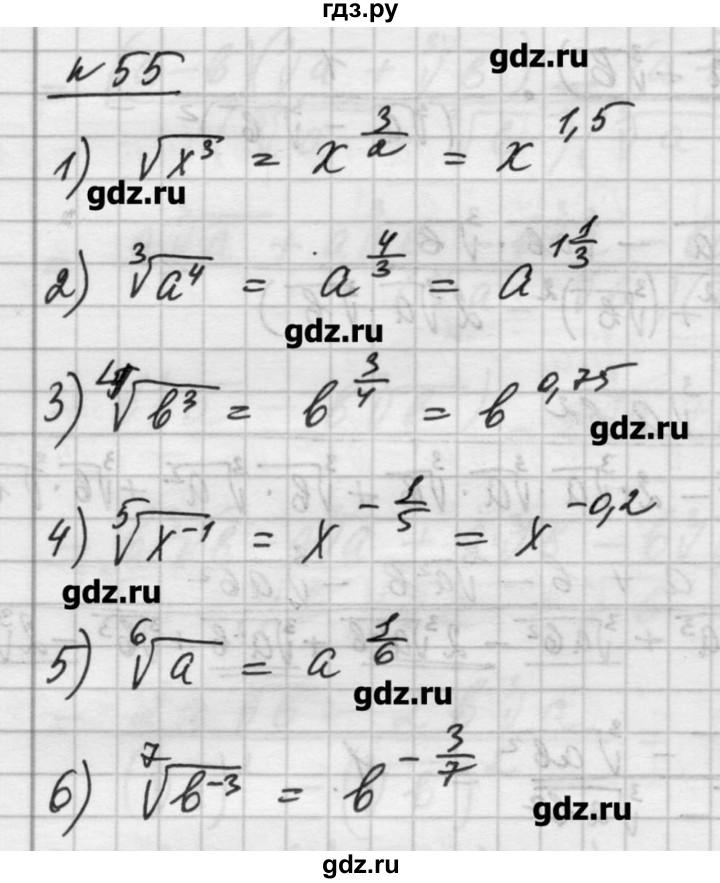 гдз.ру
gdz.ru
N 55
1) √x³ = x^(3/2) = x^1,5
gdz.ru
2) ³√a⁴ = a^(4/3) = a^(1 1/3)
gdz.ru
3) ⁴√b³ = b^(3/4) = b^0,75
gdz.ru
4) ⁵√x⁻¹ = x^(-1/5) = x^-0,2
gdz.ru
5) ⁶√a = a^(1/6)
gdz.ru
6) ⁷√b⁻³ = b^(-3/7)
gdz.ru
gdz.ru